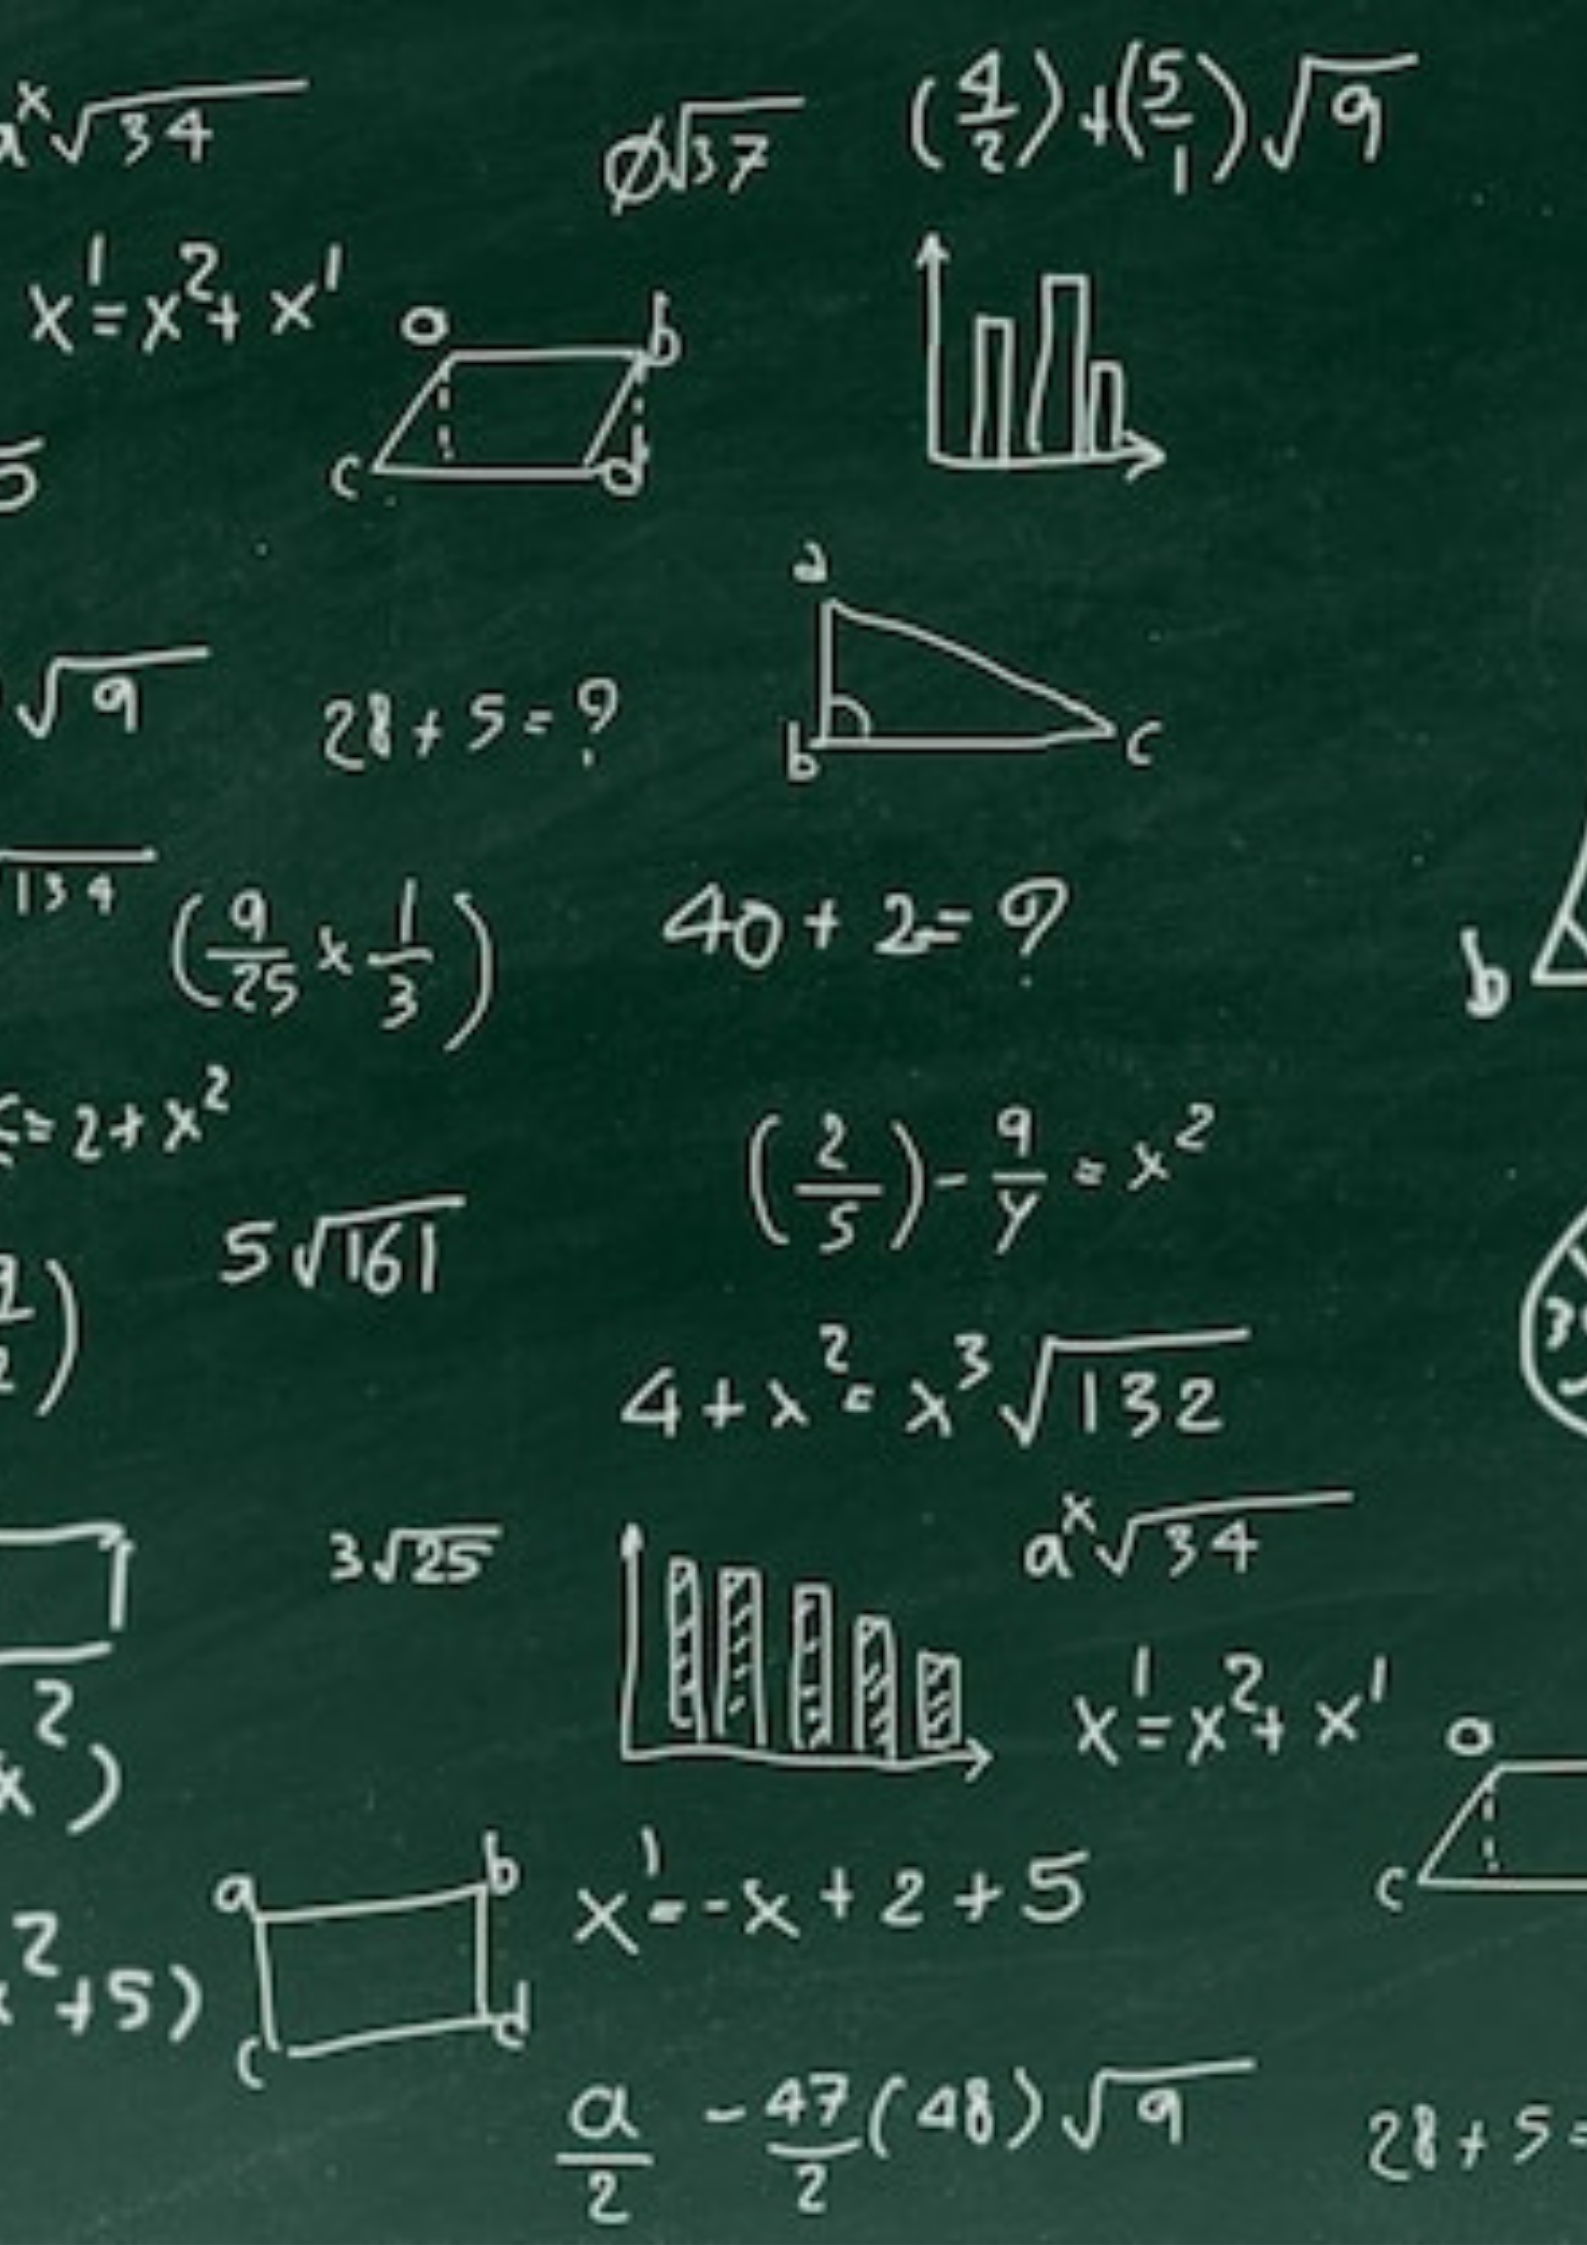 aˣ√34
∅√37
(4/2)+(5/1)√9
x¹=x²+x¹
a b
c d
√9
28+5=?
a
b c
134
(9/25 x 1/3)
40+2=?
b
=2+x²
(2/5)-9/y=x²
5√161
4+x²=x³√132
3√25
aˣ√34
x¹=x²+x¹
a
c
²)
a b
c d
x¹=-x+2+5
²+5)
a/2 -47/2(48)√9
28+5=